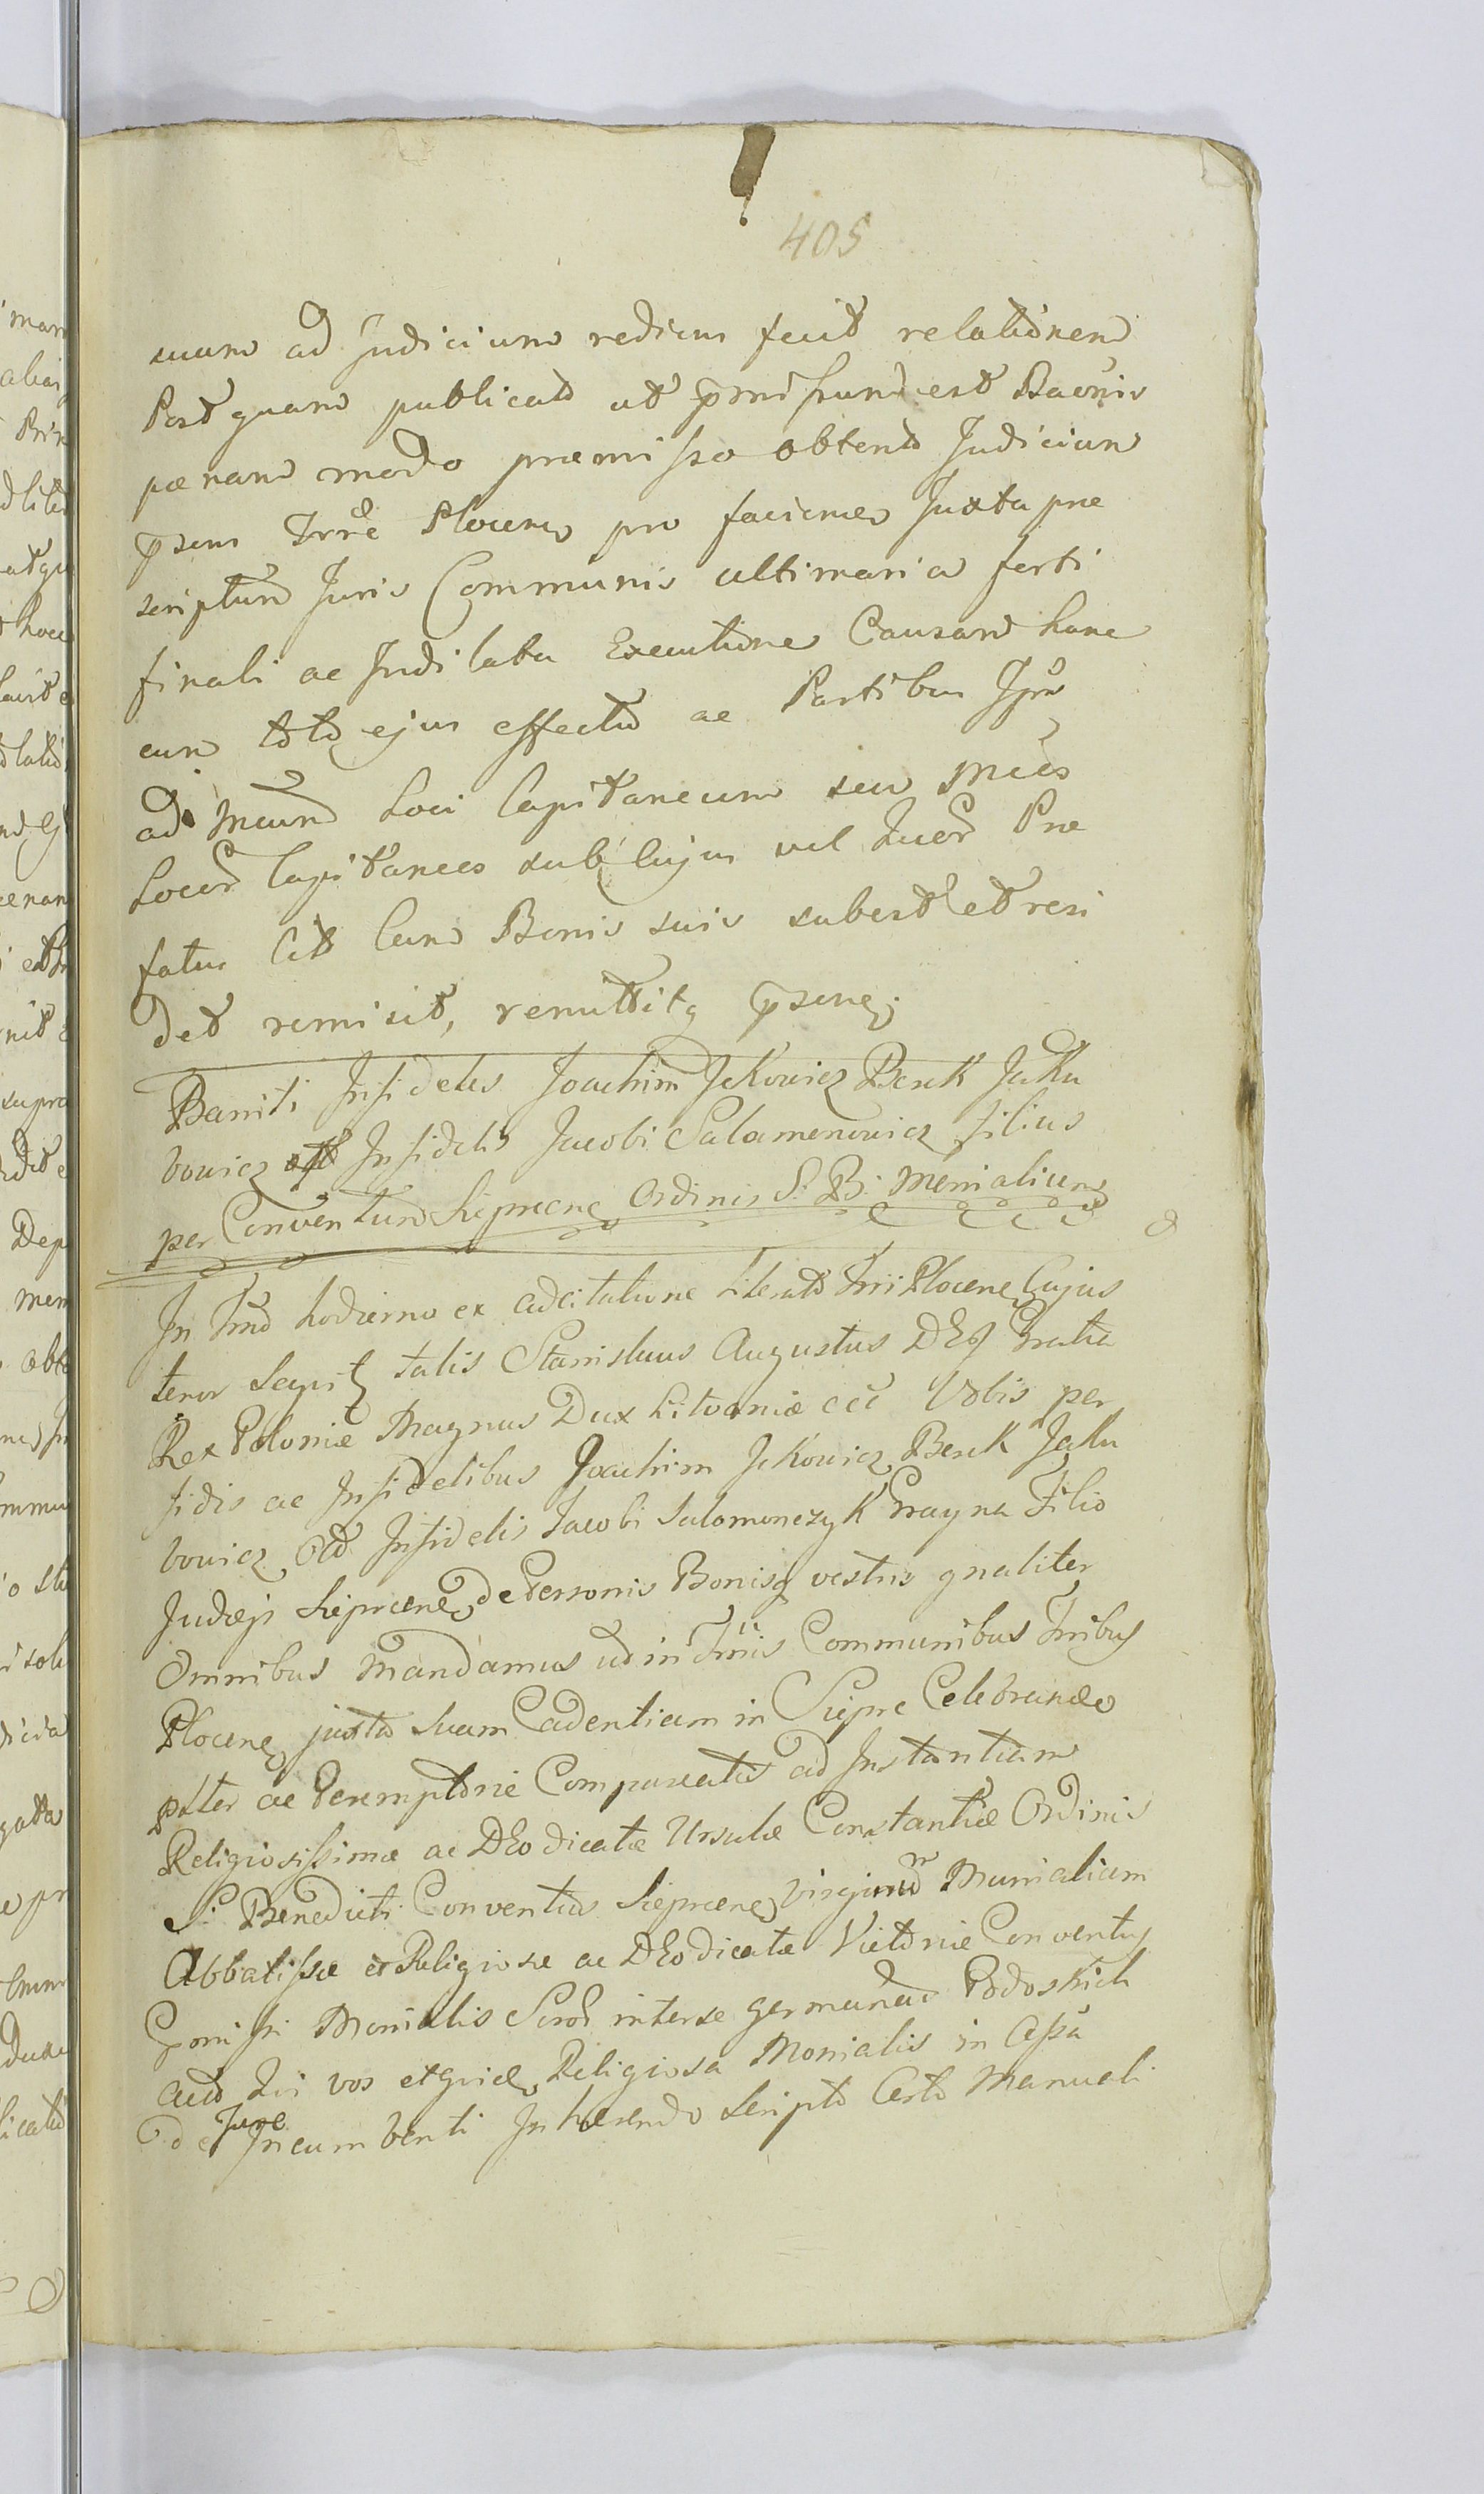 405
suam ad Judicium rediens fecit relationem
Post quam publicat ut pmissum est Baonis
pænam modo præmisso obtent Judicium
psens Trre Plocen pro faciene Juxta prae
scriptum Juris Communis ultimaria forti
finali ac Indilata Executione Causam hanc
cum toto ejus effectu ac Partibus Ipsu
ad Meum Loci Capitaneum seu Mcos
Locor Capitaneos sub Cujus vel Quor Prae
fatus Cit Cum Bonis suis subest et resi
det remisit, remittitq psene;
Banniti Infideles Joachim Jckowicz Berek Jaku
bowicz Infidelis Jacobi Salamonowicz filius
per Conventum Sieprcene Ordinis S. B. Monialium
In Tmo hodierno ex adcitatione Literat Trri Plocene Cujus
tenor Seqit talis Stanislaus Augustus DEI Gratia
Rex Poloniæ Magnus Dux Litvaniæ ect Vobis per
fidis ac Infidelibus Joachim Jckowicz Berek Jaku
bowicz Infidelis Jacobi Salomonczyk Grayna Filio
Judæis Sieprcene de Personis Bonisq vestris gnaliter
Omnibus Mandamus ut in Tmis Communibus Tribus
Plocene juxta Suam Cadentiam in Siepre Celebrande
pster ac Peremptorie Compareatis ad Instantiam
Religiosissimæ ac DEo dicatæ Ursulæ Constantiæ Ordinis
S. Benedicti Conventus Sieprcene Virginum Monialium
Abbatissæ et Religiosæ ac DEo dicatæ Victoriæ Conventus
pmissi Monialis Soror interse germanar Podoskich
Act Qui vos etquidē Religiosa Monialis in Assa
de Jure Incumbenti Inhærendo Scripto Certo Manuali